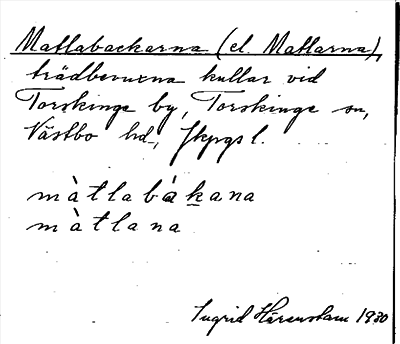 Matlabackarna (el. Matlarna),
trädbevuxna kullar vid
Torskinge by, Torskinge sn,
Västbo hd, Jkpgs l.
màtlabàkana
màtlana
Ingrid Härenstam 1930